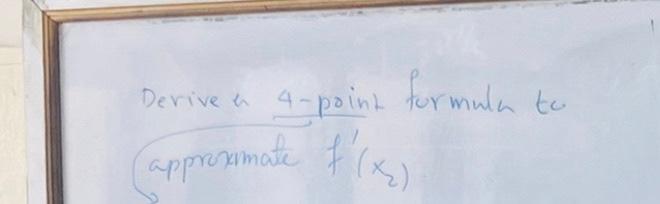 Derive a 4-point formula to
approximate f'(x₂)